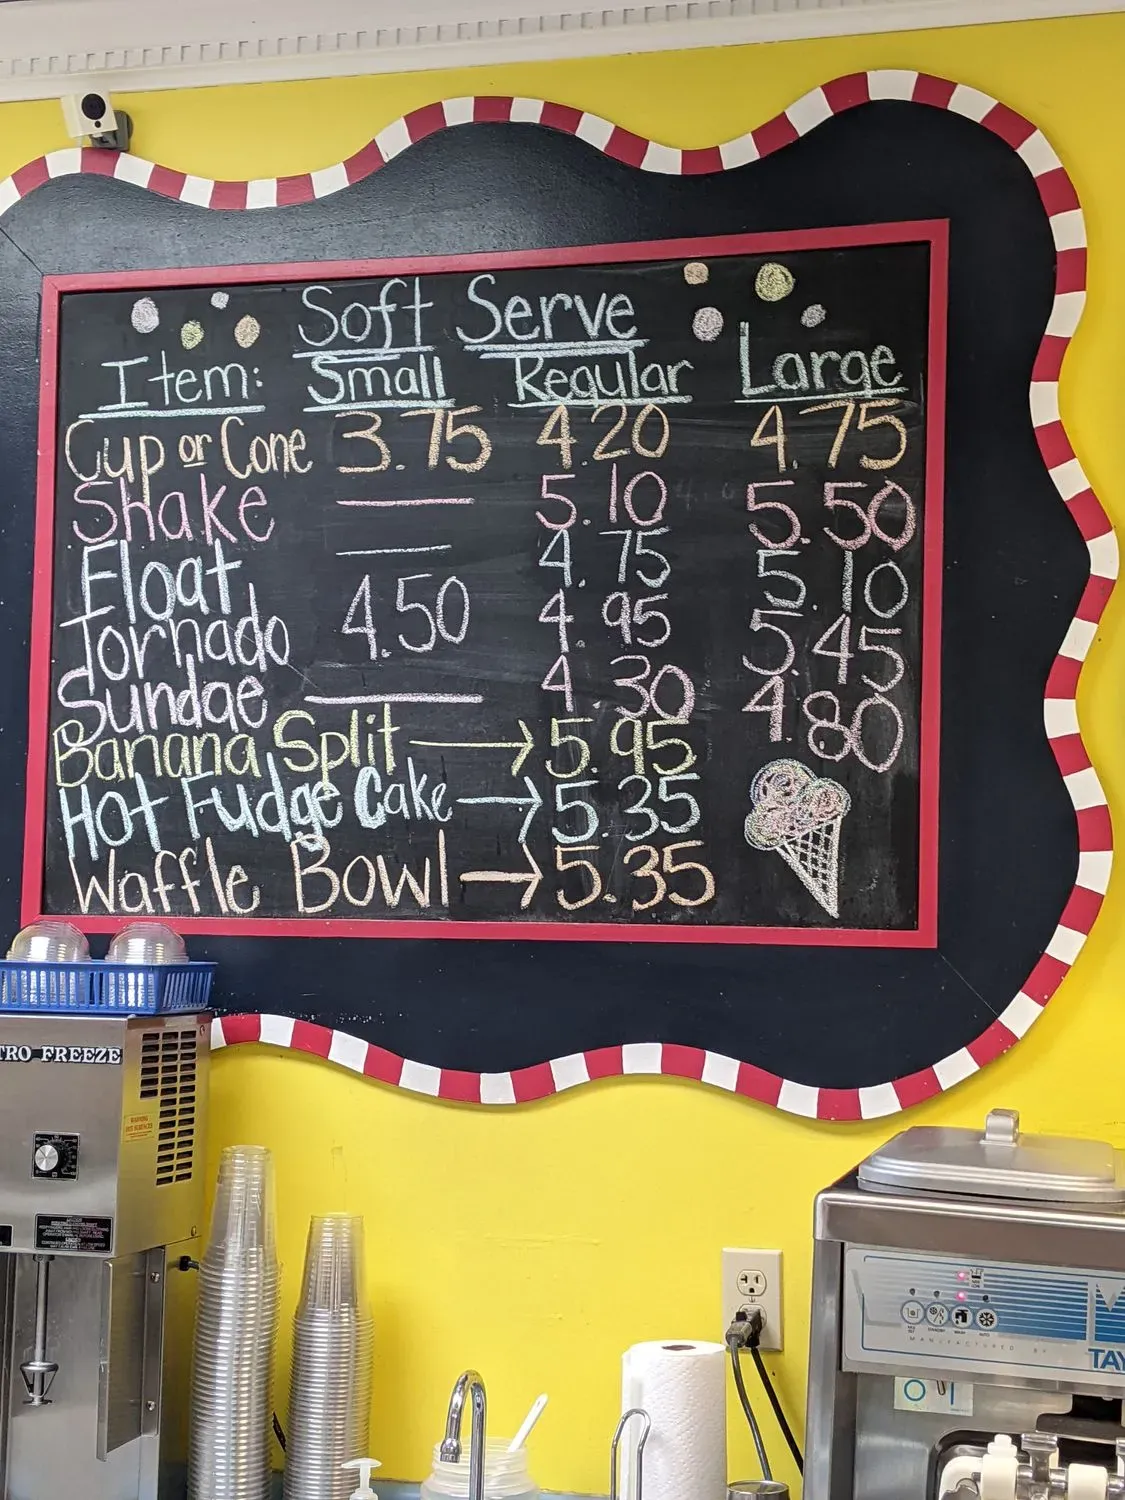 Soft Serve
Item: Small Regular Large
Cup or Cone 3.75 4.20 4.75
Shake — 5.10 5.50
Float — 4.75 5.10
Tornado 4.50 4.95 5.45
Sundae — 4.30 4.80
Banana Split → 5.95
Hot Fudge Cake → 5.35
Waffle Bowl → 5.35
TRO FREEZE
MANUFACTURED BY
TAY